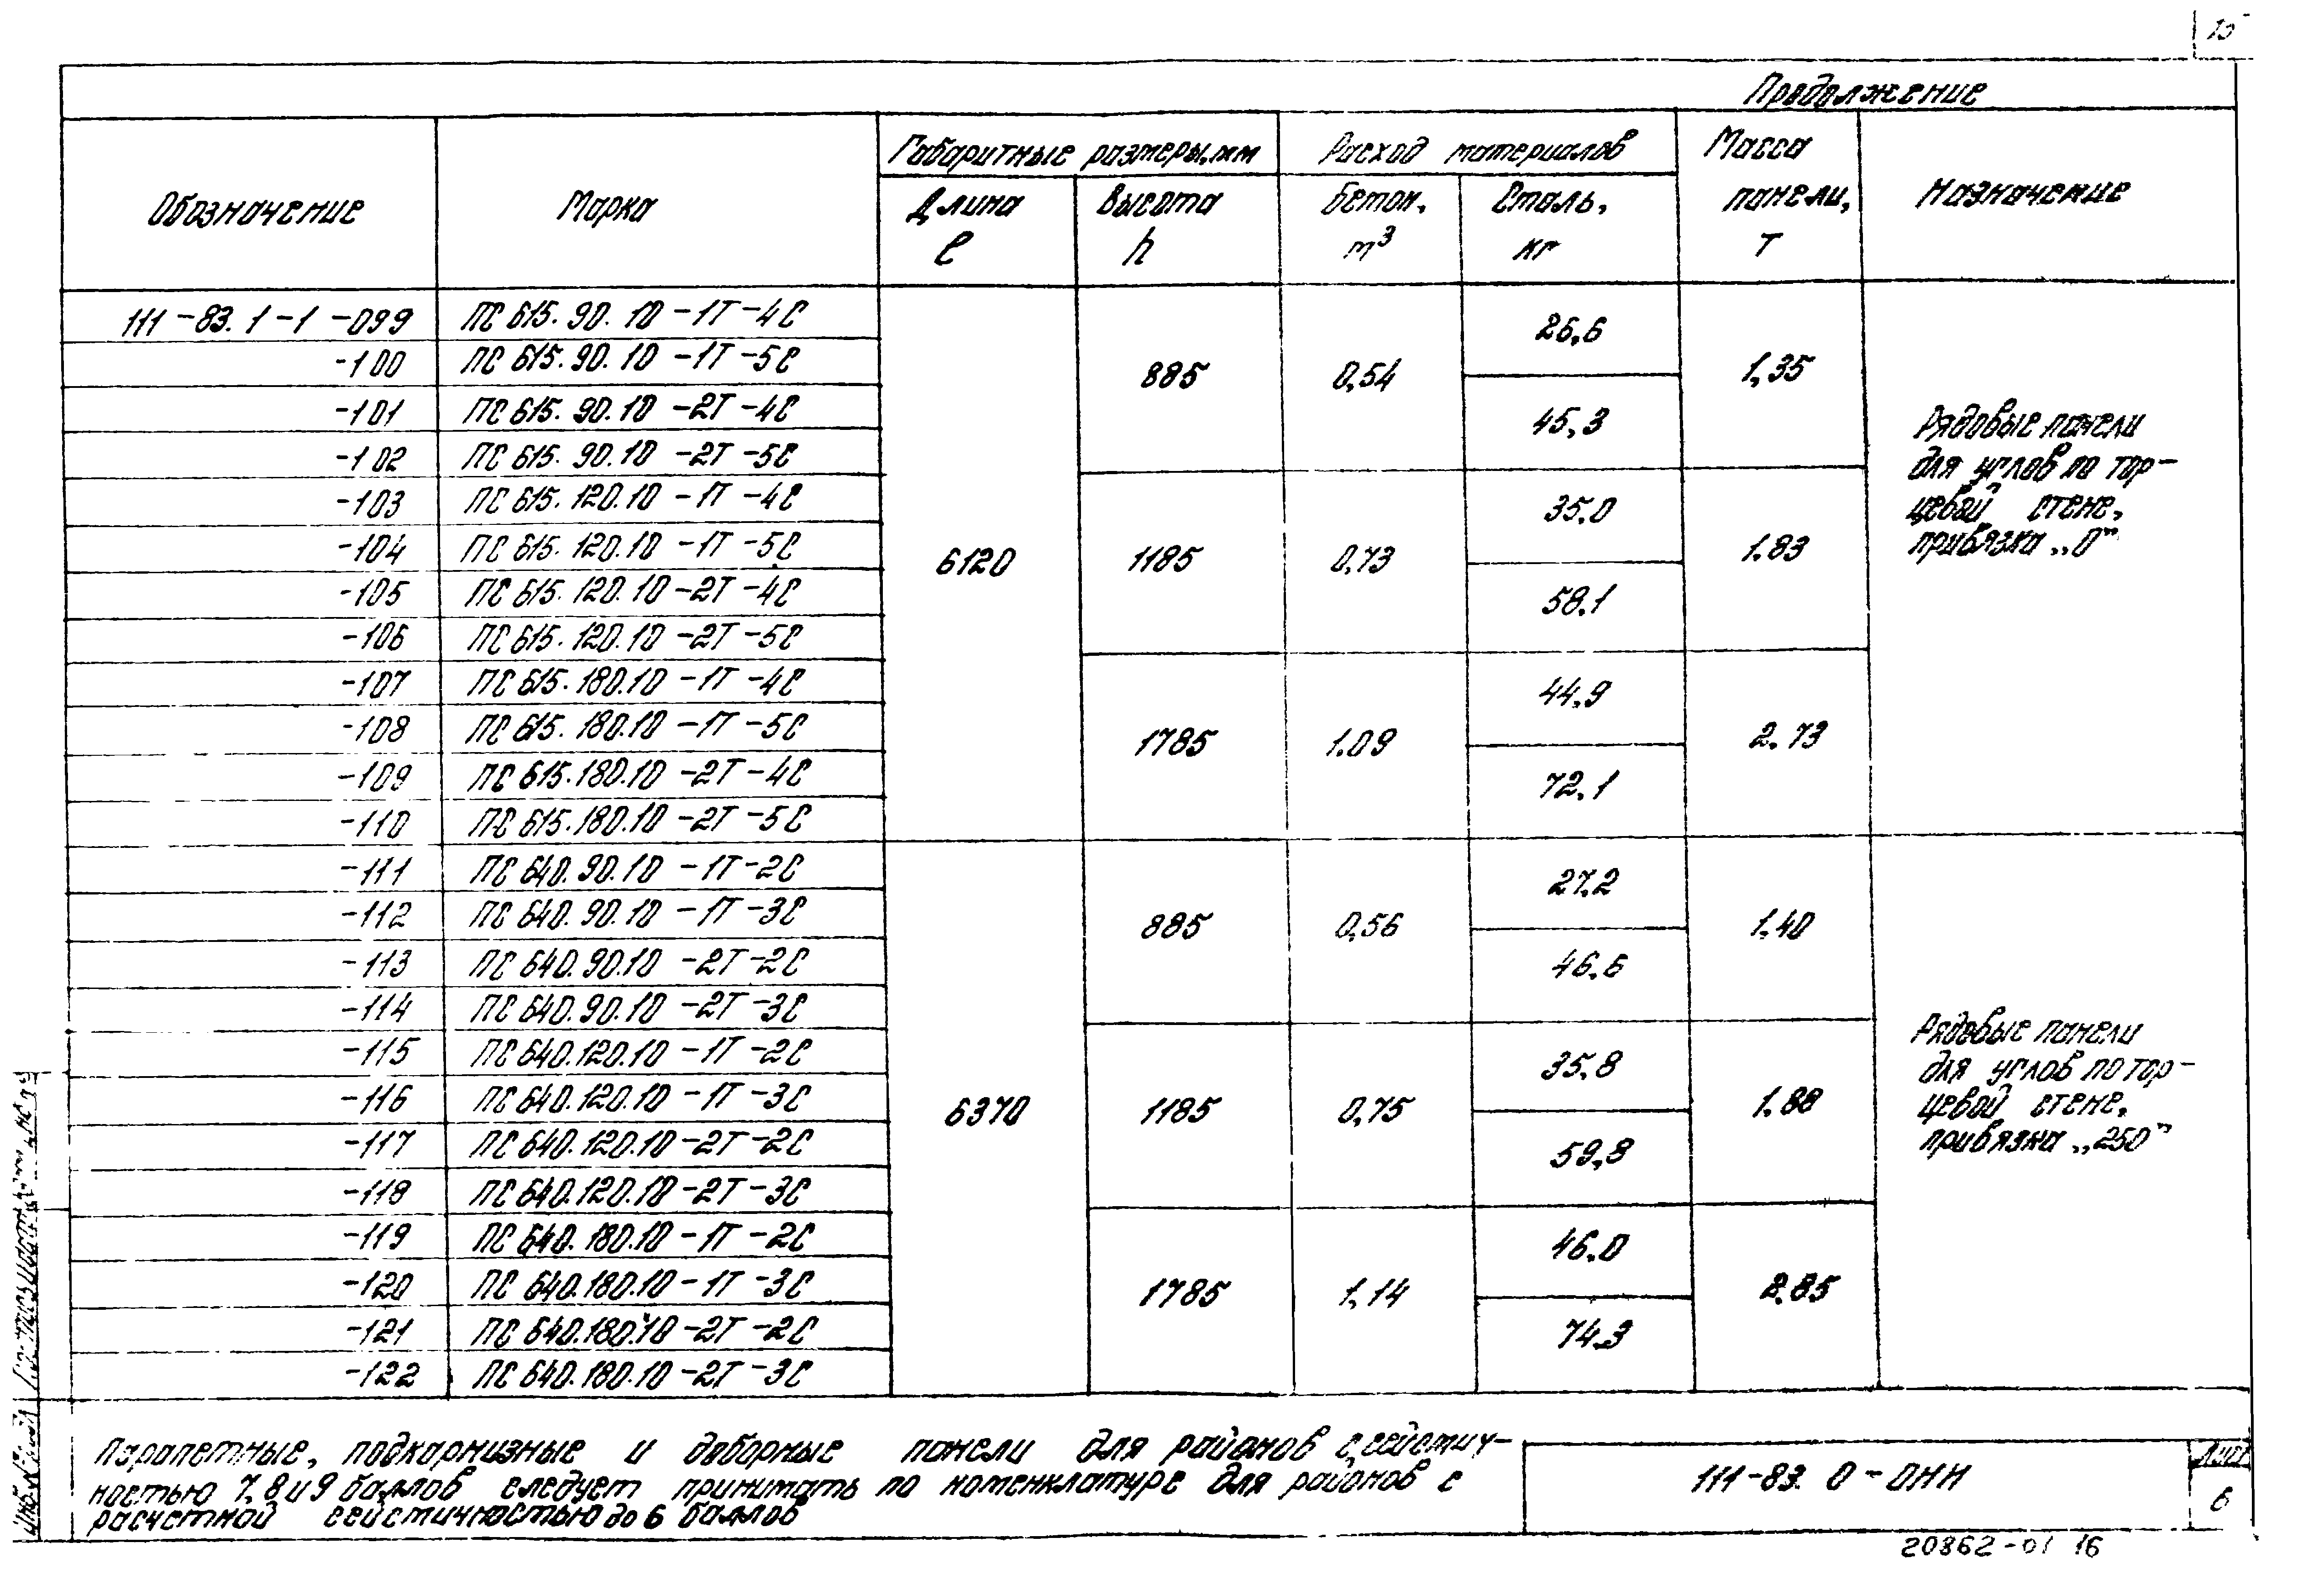 Продолжение
Обозначение Марка Габаритные размеры, мм Расход материалов Масса панели, т Назначение
Длина ℓ Высота h Бетон, м³ Сталь, кг
111-83.1-1-099 ПС 615.90.10-1Т-4С
-100 ПС 615.90.10-1Т-5С
-101 ПС 615.90.10-2Т-4С
-102 ПС 615.90.10-2Т-5С
-103 ПС 615.120.10-1Т-4С
-104 ПС 615.120.10-1Т-5С
-105 ПС 615.120.10-2Т-4С
-106 ПС 615.120.10-2Т-5С
-107 ПС 615.180.10-1Т-4С
-108 ПС 615.180.10-1Т-5С
-109 ПС 615.180.10-2Т-4С
-110 ПС 615.180.10-2Т-5С
6120
885 0,54 26,6 1,35
45,3
1185 0,73 35,0 1.83
58,1
1785 1.09 44,9 2.73
72,1
Рядовые панели
для углов по тор-
цевой стене,
привязка „0"
-111 ПС 640.90.10-1Т-2С
-112 ПС 640.90.10-1Т-3С
-113 ПС 640.90.10-2Т-2С
-114 ПС 640.90.10-2Т-3С
-115 ПС 640.120.10-1Т-2С
-116 ПС 640.120.10-1Т-3С
-117 ПС 640.120.10-2Т-2С
-118 ПС 640.120.10-2Т-3С
-119 ПС 640.180.10-1Т-2С
-120 ПС 640.180.10-1Т-3С
-121 ПС 640.180.10-2Т-2С
-122 ПС 640.180.10-2Т-3С
6370
885 0,56 27,2 1.40
46,6
1185 0,75 35,8 1.88
59,8
1785 1.14 46,0 2.85
74,3
Рядовые панели
для углов по тор-
цевой стене,
привязка „250"
Парапетные, подкарнизные и доборные панели для районов с сейсмич-
ностью 7, 8 и 9 баллов следует принимать по номенклатуре для районов с
расчетной сейсмичностью до 6 баллов
111-83. 0-ОНИ
Лист
6
20862-01 16